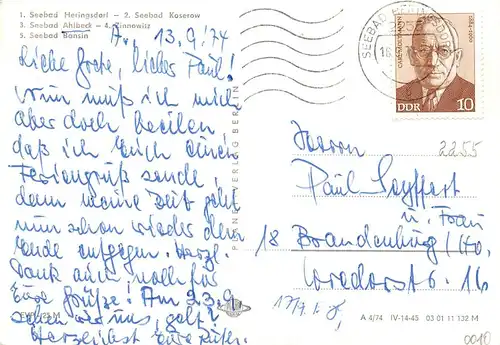 1. Seebad Heringsdorf – 2. Seebad Koserow
3. Seebad Ahlbeck – 4. Zinnowitz
5. Seebad Bansin
A., 13.9./74
Liebe Grete, lieber Paul!
Nun muß ich mich
aber doch beeilen,
daß ich Euch einen
Feriengruß sende,
denn meine Zeit geht
nun schon wieder dem
Ende entgegen. Herzl.
Dank auch noch für
Eure Grüße! Am 23.9.
sehen wir uns, gelt?
Herzlichst Eure
PLANET-VERLAG BERLIN
SEEBAD HERINGSDORF
DDR 10
2255
Herrn
Paul Seyffert
u. Frau
18 Brandenburg/Ha.
16
A 4/74 IV-14-45 03 01 11 132 M
0010